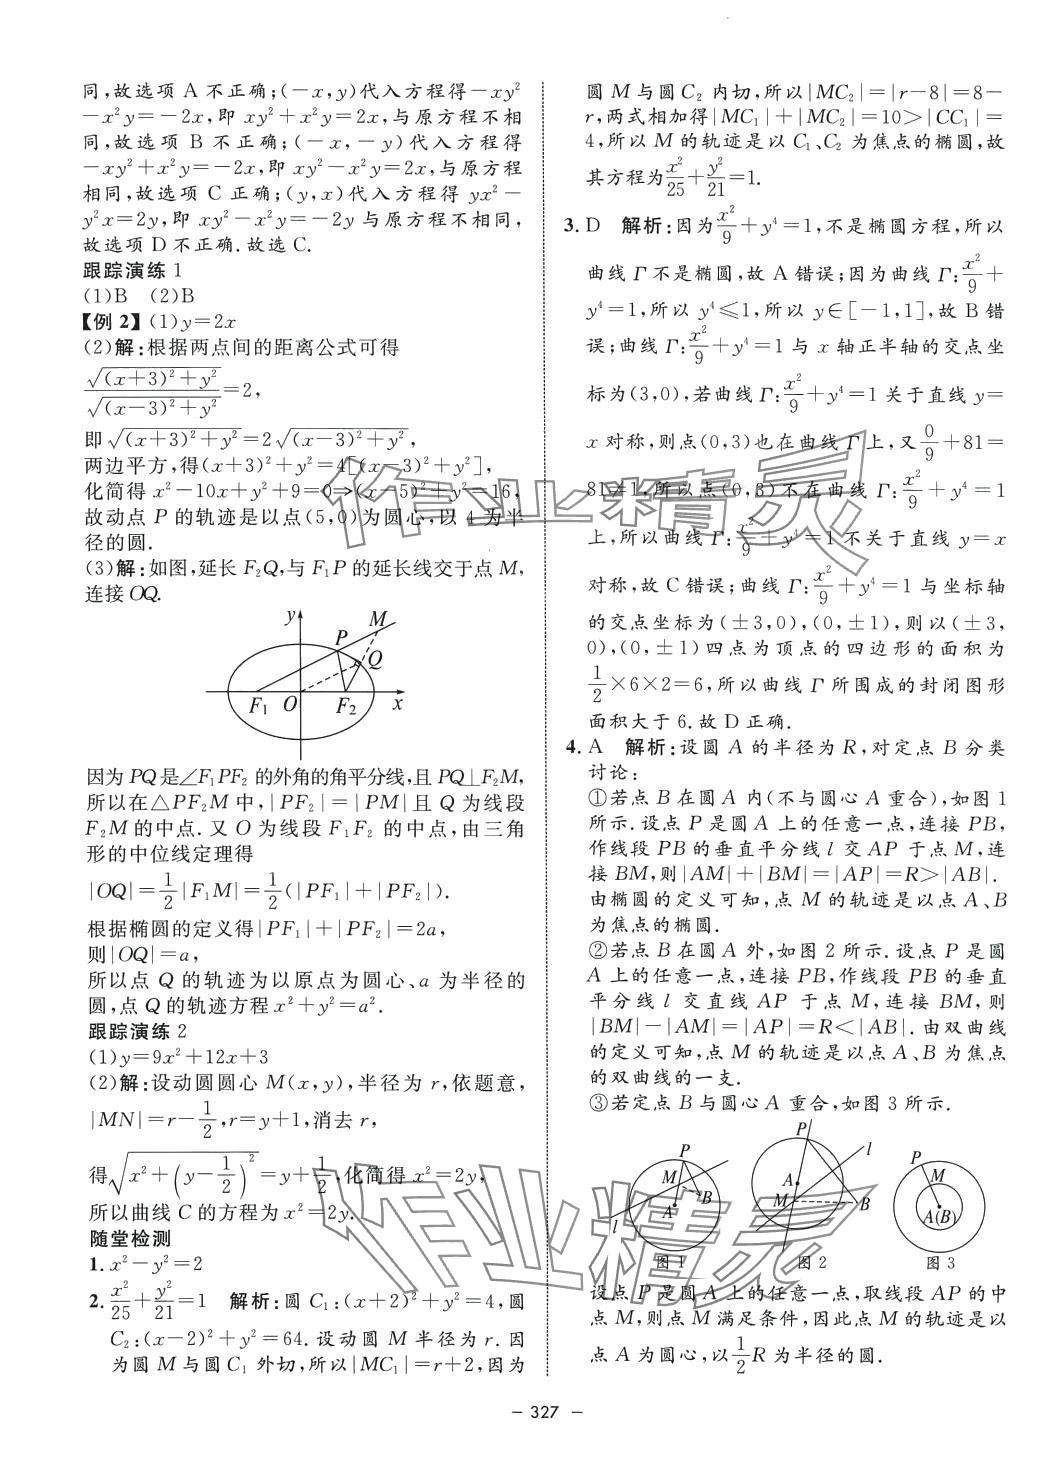 同,故选项 A 不正确;(−x,y)代入方程得−xy²
−x²y=−2x,即 xy²+x²y=2x,与原方程不相
同,故选项 B 不正确;(−x,−y)代入方程得
−xy²+x²y=−2x,即 xy²−x²y=2x,与原方程
相同,故选项 C 正确;(y,x)代入方程得 yx²−
y²x=2y,即 xy²−x²y=−2y 与原方程不相同,
故选项 D 不正确.故选 C.
跟踪演练 1
(1)B (2)B
【例 2】(1)y=2x
(2)解:根据两点间的距离公式可得
√((x+3)²+y²)/√((x−3)²+y²)=2,
即√((x+3)²+y²)=2√((x−3)²+y²),
两边平方,得(x+3)²+y²=4[(x−3)²+y²],
化简得 x²−10x+y²+9=0→(x−5)²+y²=16,
故动点 P 的轨迹是以点(5,0)为圆心,以 4 为半
径的圆.
(3)解:如图,延长 F₂Q,与 F₁P 的延长线交于点 M,
连接 OQ.
y M
P
Q
F₁ O F₂ x
因为 PQ 是∠F₁PF₂ 的外角的角平分线,且 PQ⊥F₂M,
所以在△PF₂M 中,|PF₂|=|PM|且 Q 为线段
F₂M 的中点.又 O 为线段 F₁F₂ 的中点,由三角
形的中位线定理得
|OQ|=1/2|F₁M|=1/2(|PF₁|+|PF₂|).
根据椭圆的定义得|PF₁|+|PF₂|=2a,
则|OQ|=a,
所以点 Q 的轨迹为以原点为圆心、a 为半径的
圆,点 Q 的轨迹方程 x²+y²=a².
跟踪演练 2
(1)y=9x²+12x+3
(2)解:设动圆圆心 M(x,y),半径为 r,依题意,
|MN|=r−1/2,r=y+1,消去 r,
得√(x²+(y−1/2)²)=y+1/2,化简得 x²=2y,
所以曲线 C 的方程为 x²=2y.
随堂检测
1. x²−y²=2
2. x²/25+y²/21=1 解析:圆 C₁:(x+2)²+y²=4,圆
C₂:(x−2)²+y²=64.设动圆 M 半径为 r.因
为圆 M 与圆 C₁ 外切,所以|MC₁|=r+2,因为
圆 M 与圆 C₂ 内切,所以|MC₂|=|r−8|=8−
r,两式相加得|MC₁|+|MC₂|=10>|CC₁|=
4,所以 M 的轨迹是以 C₁、C₂ 为焦点的椭圆,故
其方程为x²/25+y²/21=1.
3. D 解析:因为x²/9+y⁴=1,不是椭圆方程,所以
曲线 Γ 不是椭圆,故 A 错误;因为曲线 Γ:x²/9+
y⁴=1,所以 y⁴≤1,所以 y∈[−1,1],故 B 错
误;曲线 Γ:x²/9+y⁴=1 与 x 轴正半轴的交点坐
标为(3,0),若曲线 Γ:x²/9+y⁴=1 关于直线 y=
x 对称,则点(0,3)也在曲线 Γ 上,又0/9+81=
81≠1,所以点(0,3)不在曲线 Γ:x²/9+y⁴=1
上,所以曲线 Γ:x²/9+y⁴=1 不关于直线 y=x
对称,故 C 错误;曲线 Γ:x²/9+y⁴=1 与坐标轴
的交点坐标为(±3,0),(0,±1),则以(±3,
0),(0,±1)四点为顶点的四边形的面积为
1/2×6×2=6,所以曲线 Γ 所围成的封闭图形
面积大于 6.故 D 正确.
4. A 解析:设圆 A 的半径为 R,对定点 B 分类
讨论:
①若点 B 在圆 A 内(不与圆心 A 重合),如图 1
所示.设点 P 是圆 A 上的任意一点,连接 PB,
作线段 PB 的垂直平分线 l 交 AP 于点 M,连
接 BM,则|AM|+|BM|=|AP|=R>|AB|.
由椭圆的定义可知,点 M 的轨迹是以点 A、B
为焦点的椭圆.
②若点 B 在圆 A 外,如图 2 所示.设点 P 是圆
A 上的任意一点,连接 PB,作线段 PB 的垂直
平分线 l 交直线 AP 于点 M,连接 BM,则
|BM|−|AM|=|AP|=R<|AB|.由双曲线
的定义可知,点 M 的轨迹是以点 A、B 为焦点
的双曲线的一支.
③若定点 B 与圆心 A 重合,如图 3 所示.
P M B A l
P l A M B
P M A(B)
图 1 图 2 图 3
设点 P 是圆 A 上的任意一点,取线段 AP 的中
点 M,则点 M 满足条件,因此点 M 的轨迹是以
点 A 为圆心,以1/2R 为半径的圆.
作业精灵
作业精灵
− 327 −